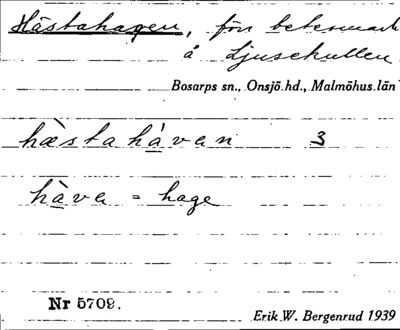 Hästahagen, förr betesmark
å Ljusekullen
Bosarps sn., Onsjö hd., Malmöhus län
hæstahàvan 3
hàva = hage
Nr 5709.
Erik W. Bergenrud 1939